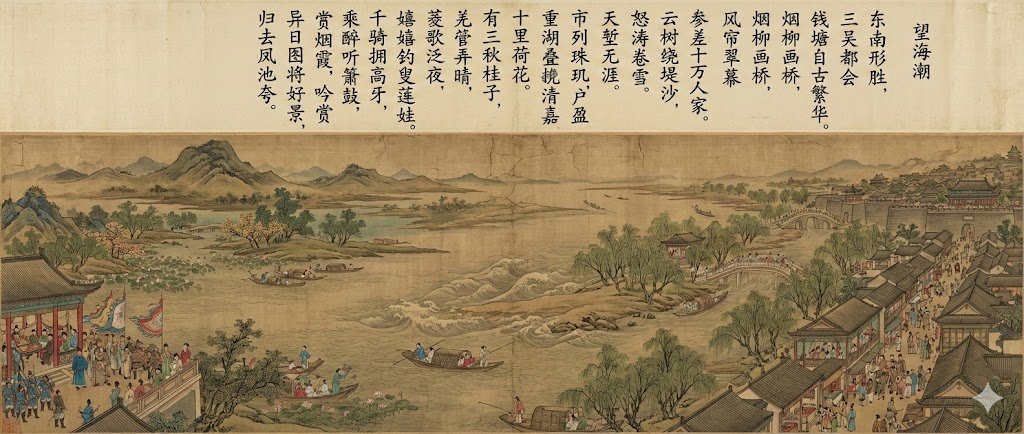 望海潮
东南形胜，
三吴都会
钱塘自古繁华。
烟柳画桥，
烟柳画桥，
风帘翠幕
参差十万人家。
云树绕堤沙，
怒涛卷雪。
天堑无涯。
市列珠玑，户盈
重湖叠𪩘清嘉
十里荷花。
有三秋桂子，
羌管弄晴，
菱歌泛夜，
嬉嬉钓叟莲娃。
千骑拥高牙，
乘醉听箫鼓，
赏烟霞，吟赏
异日图将好景，
归去凤池夸。